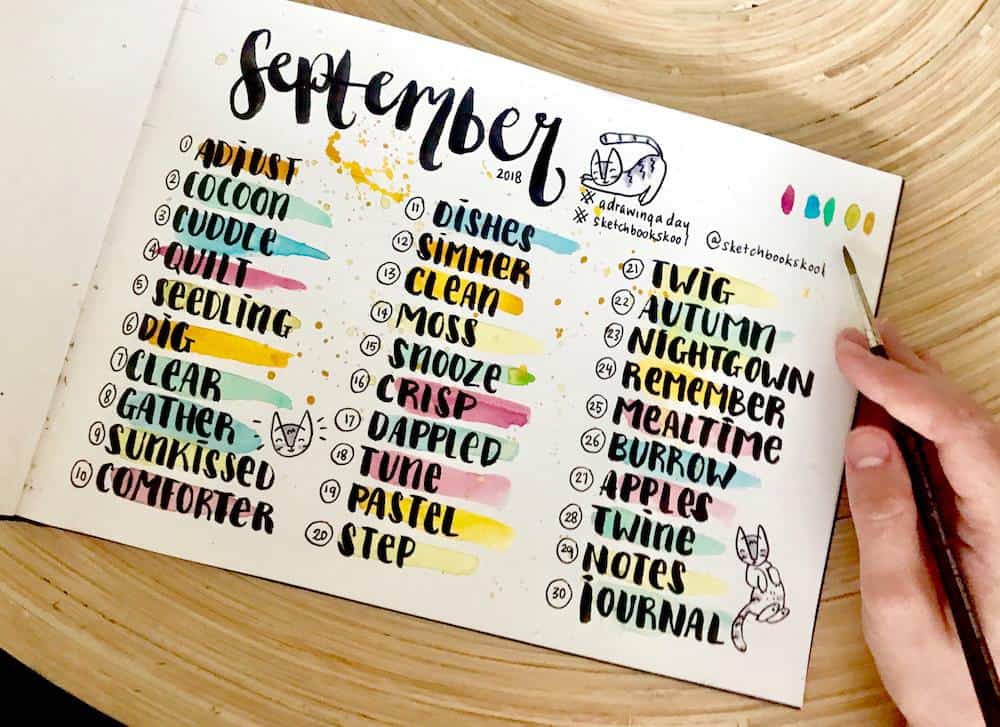 September
2018
# adrawingaday
# sketchbookskool
@sketchbookskool
1 ADJUST
2 COCOON
3 CUDDLE
4 QUILT
5 SEEDLING
6 DIG
7 CLEAR
8 GATHER
9 SUNKISSED
10 COMFORTER
11 DISHES
12 SIMMER
13 CLEAN
14 MOSS
15 SNOOZE
16 CRISP
17 DAPPLED
18 TUNE
19 PASTEL
20 STEP
21 TWIG
22 AUTUMN
23 NIGHTGOWN
24 REMEMBER
25 MEALTIME
26 BURROW
27 APPLES
28 TWINE
29 NOTES
30 JOURNAL